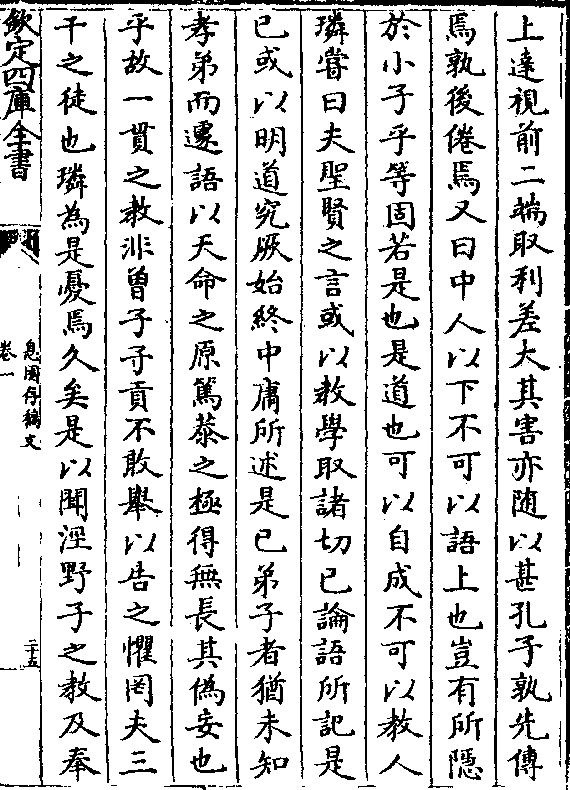 上達視前二端取利差大其害亦随以甚孔子孰先傳
焉孰後倦焉又曰中人以下不可以語上也豈有所隠
於小子乎等固若是也是道也可以自成不可以教人
璘嘗曰夫聖賢之言或以教學取諸切已論語所記是
已或以明道究厥始終中庸所述是已弟子者猶未知
孝弟而遷語以天命之原篤恭之極得無長其偽妄也
乎故一貫之教非曽子子貢不敢舉以告之懼罔夫三
千之徒也璘為是憂焉久矣是以聞涇野子之教及奉
欽定四庫全書
息園存稿文
卷一
二十五